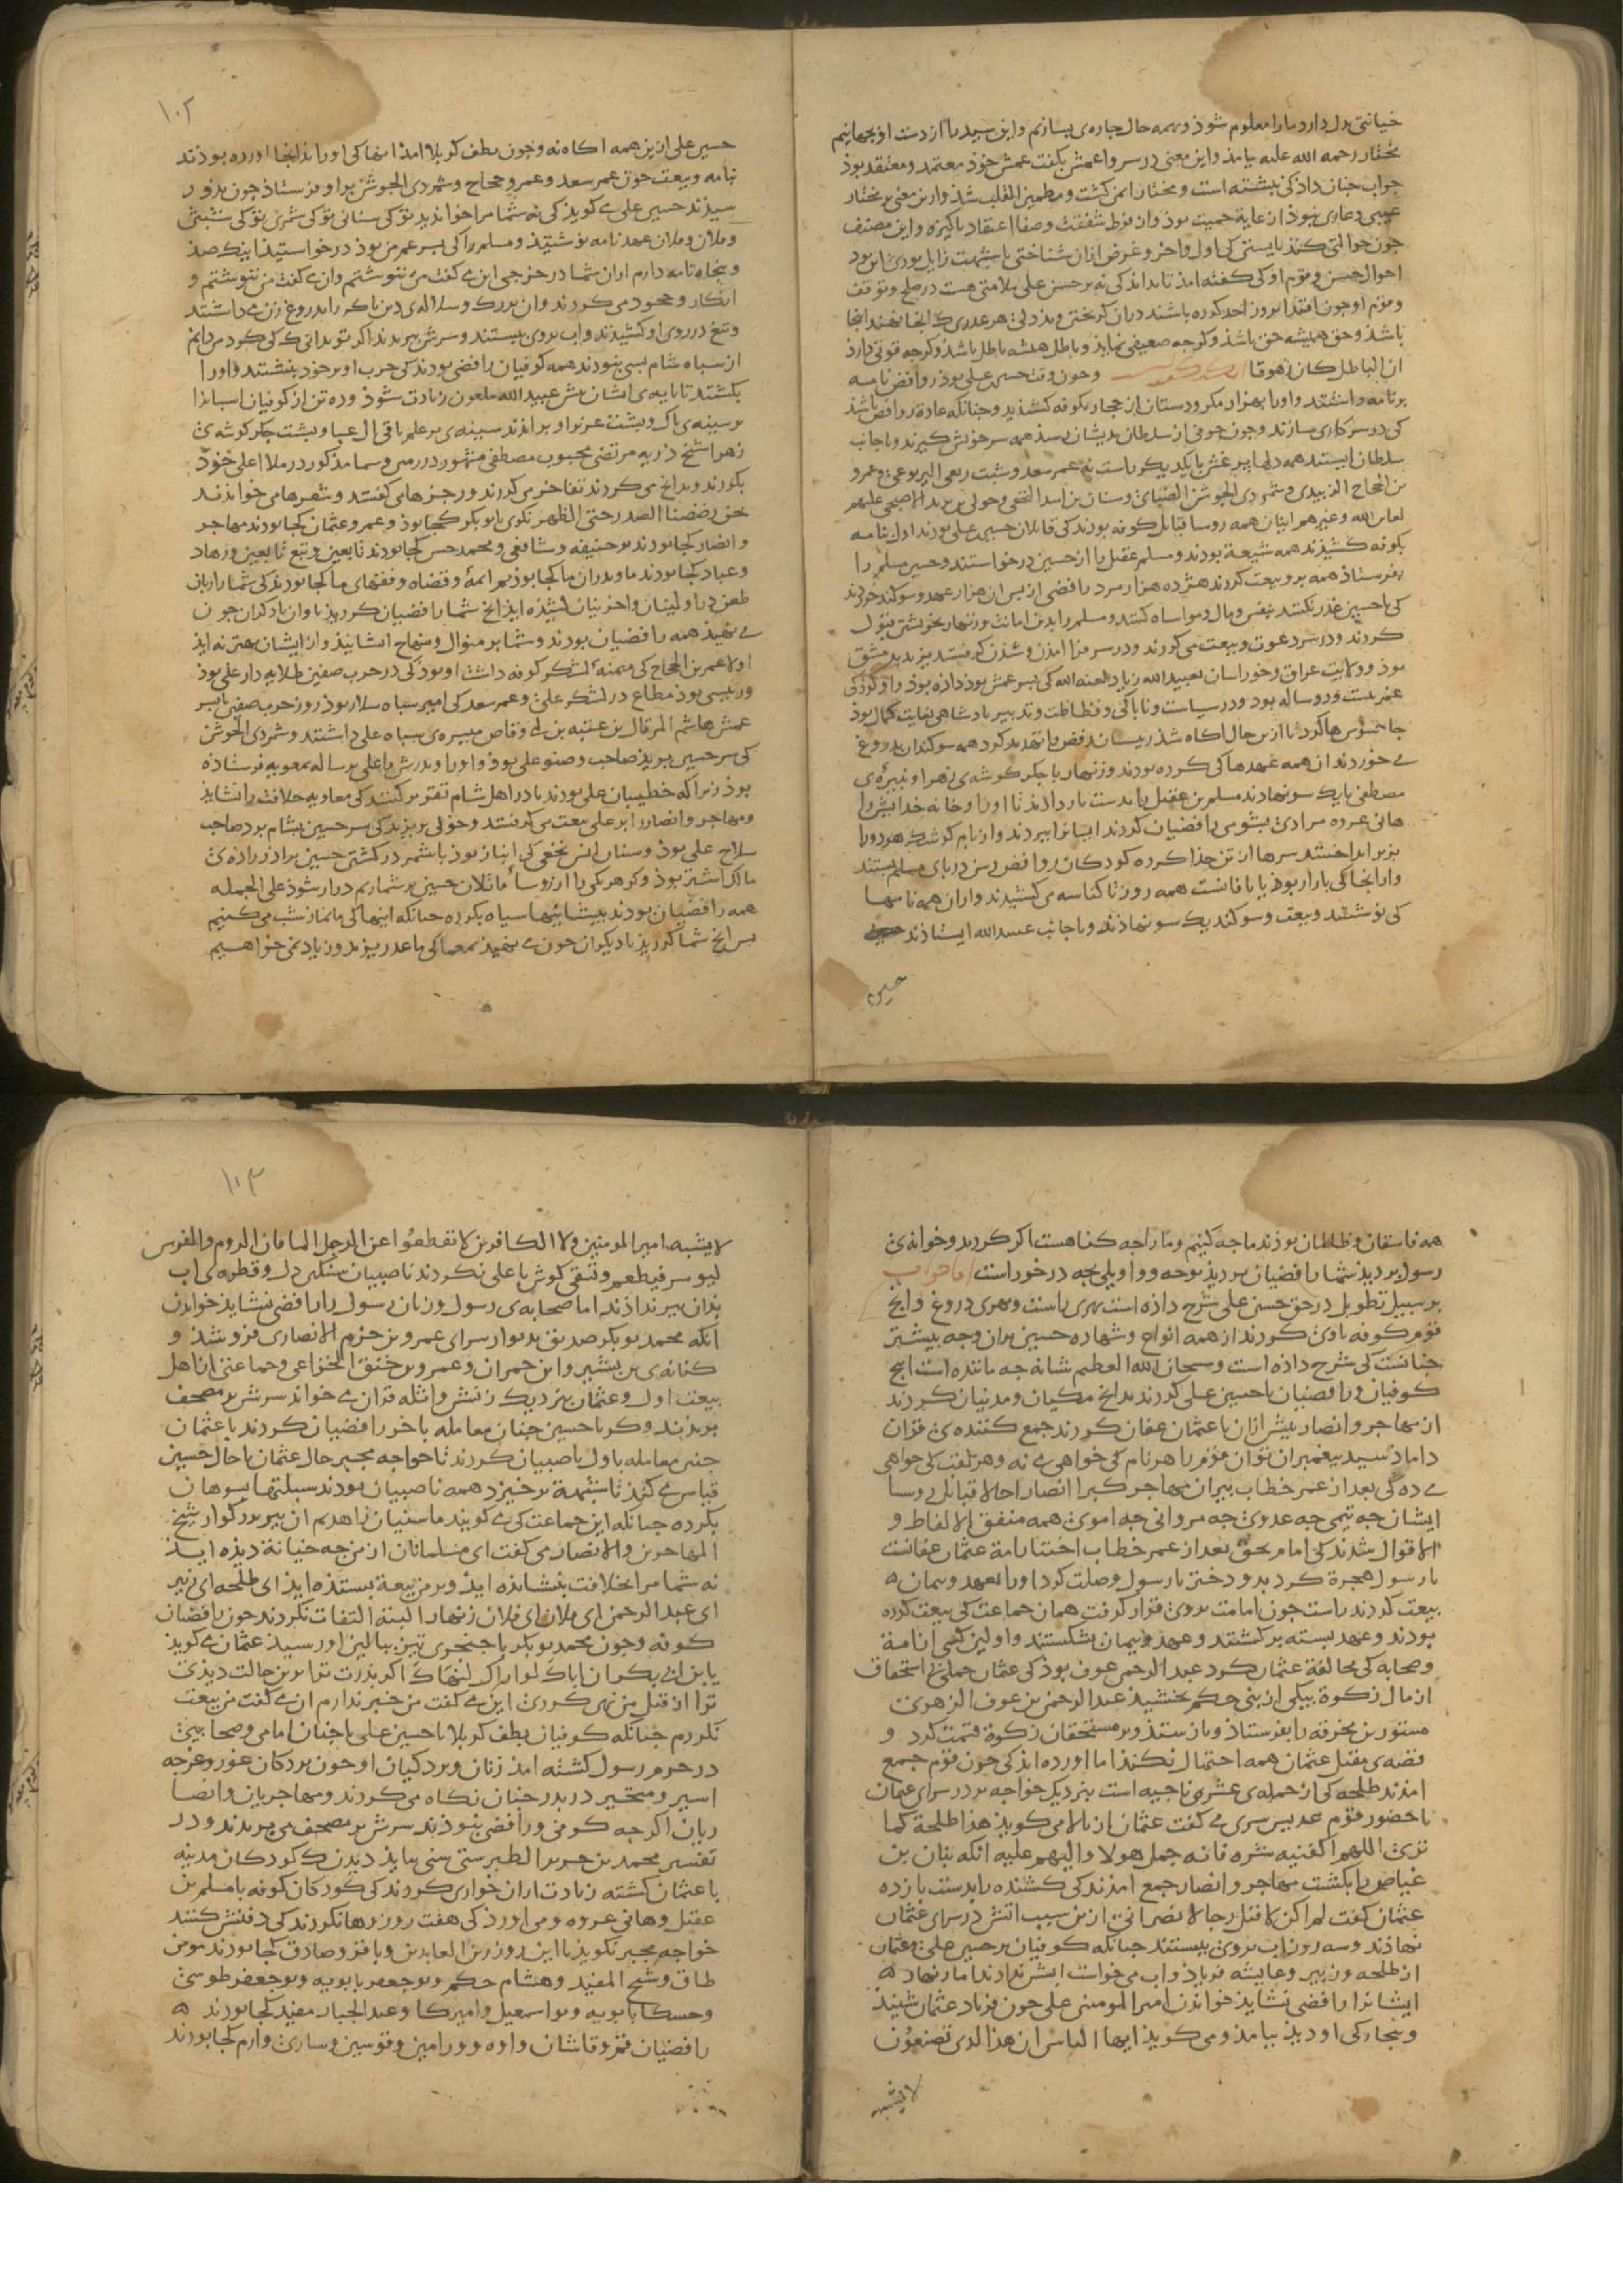 خیانتی در دل دارد ما را معلوم شوذ و بهمه حال چاره‌ی بسازیم و این سید را از دست او بجهانیم
مختار رحمه الله علیه بیامذ و این معنی در سر وا عمش بگفت عمش خوذ معتمد و معتقد بوذ
جواب چنان داذ کی نبشته است و مختار ایمن گشت و مطمین القلب شذ و ازین معنی بر مختار
عیبی و عاری نبوذ از غایة حمیت بوذ و از فرط شفقت و صفاء اعتقاد پاکیزه و این مصنف
چون حوالتی کنذ بایستی کی اول و آخر و غرض ازان شناختی تا شبهت زایل بوذی این بود
احوال حسن و قوم او کی گفته امذ تا بداند کی نه بر حسن علی ملامتی هست در صلح و توقف
و قوم او چون اقتدا بروز احد کرده باشند دران گریختن و بددلی هر عذری که آنجا نهند اینجا
باشذ و حق همیشه حق باشذ و گرچه ضعیفی نمایذ و باطل همشه باطل باشذ و گرچه قوتی دارذ
ان الباطل کان زهوقا و چون وقت حسین علی بوذ روافض نامه
بر نامه داشتند و او را بهزار مکر و دستان از حجاز بکوفه کشیذند و چنانکه عادة روافض باشذ
کی در سر کاری سازند و چون خوفی از سلطان بدیشان رسذ همه سر خویش گیرند و با جانب
سلطان ایستند همه دلها پر غش با یکدیگر راست نه عمر سعد و شبث ربعی الیربوعی و عمرو
بن الحجاج الزبیدی و شمر ذی الجوشن الضبابی و سنان بن انس النخعی و خولی بن یزید الاصبحی علیهم
لعاین الله و غیرهم اینان همه روسا قبایل کوفه بودند کی قاتلان حسین علی بودند اول بنامه
بکوفه کشیذند همه شیعة بودند و مسلم عقیل را از حسین درخواستند و حسین مسلم را
بفرستاذ همه برو بیعت کردند هژده هزار مرد رافضی از پس آن هزار عهد و سوگند خوردند
کی با حسین غدر نکنند بنفس و مال و مواساه کنند و مسلم را بدین امانت و زنهار بخویشتن قبول
کردند و در سر دعوت و بیعت می کردند و در سر فرا آمدن و شدن گرفتند یزید بدمشق
بوذ و ولایت عراق و خوراسان بعبید الله زیاد لعنه الله کی پسر عمش بوذ داده بوذ و او کوذکی
عمر بیست و دو ساله بود و در سیاست و ناباکی و فظاظت و تدبیر پادشاهی بغایت کمال بوذ
جاسوسها کرد تا ازین حال آگاه شذ رییسان رفض را تهدید کرد همه سوگندان بدروغ
می خوردند آن همه عهدها کی کرده بودند و زنهار با جگر گوشه‌ی زهرا و نبیره‌ی
مصطفی با یک سو نهادند مسلم بن عقیل را بدست باز دادند تا او را و خانه خدایش را
هانی عروه مرادی بشومی رافضیان کردند ایشانرا ببردند و از بام کوشک هر دو را
بزیر انداختند سرها از تن جذا کرده کوذکان روافض رسن در پای مسلم بستند
و از آنجا کی بازار بوذ یا بافانست همه روز تا کناسه می کشیدند و ازان همه نامها
کی نوشتند و بیعت و سوگند یک سو نهاذند و با جانب عبید الله ایستاذند
حسین
۱۰۲
حسین علی ازین همه آگاه نه و چون بطف کربلا آمذ اینها کی او را بدانجا آورده بوذند
بنامه و بیعت چون عمر سعد و عمرو حجاج و شمر ذی الجوشن برابر او فرستاذ چون بذو ر
سیذند حسین علی می گویذ کی نه شما مرا خواندید تو کی سنانی تو کی شمری تو کی شبثی
و فلان و فلان عهد نامه نوشتید و مسلم را کی پسر عم من بوذ درخواستید اینک صذ
و پنجاه نامه دارم ازان شما در خرجی این می گفت من ننوشتم و آن می گفت من ننوشتم و
انکار و جحود می کردند و آن بزرگ و سلاله‌ی دین پاک را بدروغ زن می داشتند
و تیغ در روی او کشیدند و آب بروی ببستند و سرش ببریدند اگر تو بدانی که کی کرد من دانم
از سباه شام بسی نبودند همه کوفیان رافضی بودند کی حرب او بر خود بنبشتند و او را
بکشتند تا پایه‌ی ایشان پیش عبید الله ملعون زیادت شوذ و ده تن از کوفیان اسبانرا
بر سینه‌ی پاک و پشت عزیز او براندند سینه‌ی پر علم باقی آل عبا و پشت جگر گوشه‌ی
زهرا شنخ ذریه مرتضی محبوب مصطفی مشهور در زمین و سما مذکور در ملا اعلی خوذ
بکوردند و بدانچ می کردند تفاخر می کردند و رجزها می گفتند و شعرها می خواندند
نحن رضضنا الصدر حتی الظهر نگوی تا بو بکر کجا بوذ و عمر و عثمان کجا بودند مهاجر
و انصار کجا بودند بو حنیفه و شافعی و محمد حسن کجا بودند تابعین و تبع تابعین و زهاد
و عباد کجا بودند ما و پدران ما کجا بوذیم ائمه و قضاه و فقهای ما کجا بودند کی شما را زبان
طعن در اولینان و آخرینان کشیذه ایذ آنچ شما رافضیان کردید با وان دگران چون
می نهیذ همه رافضیان بودند و شما بر منوال و منهاج ایشانیذ و از ایشان بهتر نه ایذ
اولا عمر بن الحجاج کی میمنه لشکر کوفه داشت او بوذ کی در حرب صفین طلایه دار علی بوذ
و رییسی بوذ مطاع در لشکر علی و عمر سعد کی امیر سباه سلار بوذ روز حرب صفین با پسر
عمش هاشم المرقال بن عتبه بن ابی وقاص میسره‌ی سباه علی داشتند و شمر ذی الجوشن
کی سر حسین برید صاحب وضو علی بوذ و او را و پدرش را علی برساله بمعویه فرستاذه
بوذ زیرا که خطیبان علی بودند تا در اهل شام تقریر کنند کی معاویه خلافت را نشایذ
و مهاجر و انصار را بر علی بیعت می گرفتند و خولی بن یزید کی سر حسین بشام برد صاحب
سلاح علی بوذ و سنان انس نخعی کی انباز بوذ با شمر در کشتن حسین براذر زاده‌ی
مالک اشتر بوذ و گر هر یکی را از روسا قاتلان حسین بر شماریم دراز شوذ علی الجمله
همه رافضیان بودند پیشانیها سیاه بکرده چنانکه اینها کی ما نماز شب می کنیم
پس آنچ شما کردید با دیگران چون می نهیذ معما کی ما عذر یزید و زیاد نمی خواهیم
همه فاسقان و ظالمان بوذند ما چه کنیم و ما را چه گناهست اگر کردید و خوانه‌ی
رسول بردید شما رافضیان بردید نوحه و واویلی بچه درخور است اما جواب
بر سبیل تطویل در حق حسین علی شرح داذه است بهری راست و بهری دروغ و آنچ
قوم کوفه باوی کردند از همه انواع و شهاده حسین بران وجه بیشتر
چنانست کی شرح داذه است و سبحان الله العظیم شانه چه ماننده است آنچ
کوفیان و رافضیان با حسین علی کردند بدانچ مکیان و مدنیان کردند
از مهاجر و انصار پیش ازان با عثمان عفان کردند جمع کننده‌ی قران
داماد سید پیغمبران توان قوم را هر نام کی خواهی می نه و هر لقب کی خواهی
می ده کی بعد از عمر خطاب پیران مهاجر کبرا انصار اجلا قبایل روسا
ایشان چه تیمی چه عدوی چه مروانی چه اموی همه متفق الالفاظ و
الاقوال شدند کی امام بحق بعد از عمر خطاب اختیار امة عثمان عفانست
با رسول هجرة کرد بدو دختر با رسول وصلت کرد او را بعهد و پیمان
بیعت کردند راست چون امامت بروی قرار گرفت همان جماعت کی بیعت کرده
بودند و عهد بسته برگشتند و عهد و پیمان بشکستند و اولین کسی از امة
و صحابه کی مخالفة عثمان کرد عبد الرحمن عوف بوذ کی عثمان جملی استحقاق
از مال زکوة بیکی از بنی حکم بخشیذ عبد الرحمن بن عوف الزهوی
مستور بن مخرقه را بفرستاذ و باز ستذ و بر مستحقان زکوة قسمت کرد و
قصه‌ی مقتل عثمان همه احتمال نکند اما آورده اند کی چون قوم جمع
آمدند طلحه کی از جمله‌ی عشره ناجیه است بنزدیک خواجه بر در سرای عثمان
با حضور قوم عدیس سری می گفت عثمان از بالا می گوید هذا طلحة کما
تری اللهم اکفنیه شره فانه حمل هولا و الیهم علیه آنکه نیان بن
غیاض را بکشت مهاجر و انصار جمع آمدند کی کشنده را بدست باز ده
عثمان گفت لم اکن لاقتل رجلا لا نصرانی ازین سبب آتش در سرای عثمان
نهاذند و سه روز آب بروی ببستند چنانکه کوفیان بر حسین علی و عثمان
از طلحه و زبیر و عایشه فریاد و آب می خواست آبش ندادند اما زنهاد
ایشانرا رافضی نشاید خواندن امیر المومنین علی چون فریاد عثمان شنیذ
و بیچارگی او دیذ بیامذ و می گویذ ایها الناس ان هذا الذی تصنعون
لا یشبه
۱۰۳
لا یشبه امیر المومنین ولا الکافرین لا تقطعوا عن الرجل الما فان الروم و الفرس
لیوسر فیطعم و تسقی گوش با علی نکردند ناصبیان سنگین دل و قطره‌ی آب
بدان پیر نداذند اما صحابه‌ی رسول و زنان رسول را رافضی نشایذ خواندن
آنکه محمد بو بکر صدیق بدیوار سرای عمرو بن حزم الانصاری فرو شذ و
کنانه‌ی بن بشیر و ابن حمران و عمرو بن حنق الخزاعی و جماعتی از اهل
بیعت اول و عثمان بنزدیک زنش واثله قران می خواند سرش بر مصحف
ببریدند و گر با حسین چنان معامله باخر رافضیان کردند با عثمان
چنین معامله باول ناصبیان کردند تا خواجه مجبر حال عثمان با حال حسین
قیاس می کند تا شبهة برخیزد همه ناصبیان بودند سبلتها بسوهان
بکرده چنانکه این جماعت کی می گویند ما سنیان زاهدیم آن پیر بزرگوار شیخ
المهاجرین و الانصار می گفت ای مسلمانان از من چه خیانة دیذه ایذ
نه شما مرا بخلافت بنشانده ایذ و بر من بیعة بستذه ایذ ای طلحه ای زبیر
ای عبد الرحمن ای فلان ای فلان زنهار البته التفات نکردند چون رافضیان
کوفه و چون محمد بو بکر با خنجری تیز ببالین او رسیذ عثمان می گوید
یا بن ابی بکر ان اباک لوراک لنهاک اگر پذرت ترا برین حالت دیذی
ترا از قتل من نهی کردی این می گفت من خبر ندارم آن می گفت من بیعت
نکردم چنانکه کوفیان بطف کربلا با حسین علی با چنان امامی و صحابیی
در حرم رسول کشته آمذ زنان و بردگیان او چون بردگان غور و غرچه
اسیر و متحیر در پدر چنان نگاه می کردند و مهاجریان و انصا
ریان اگرچه کوفی و رافضی نبوذند سرش بر مصحف می بریدند و در
تفسیر محمد بن جریر الطبرستی سنی بباید دیدن که کودکان مدینه
با عثمان کشته زیادت ازان خواری کردند کی کودکان کوفه با مسلم بن
عقیل و هانی عروه و می آورذ کی هفت روز رها نکردند کی دفنش کنند
خواجه مجبر نگویذ تا این روز زین العابدین و باقر و صادق کجا بودند مومن
طاق و شیخ المفید و هشام حکم و بو جعفر بابویه و بو جعفر طوسی
و حسکا بابویه و بو اسمعیل و امیرکا و عبد الجبار مفید کجا بودند
رافضیان قم و قاشان و آوه و ورامین و قوسین و ساری و ارم کجا بودند